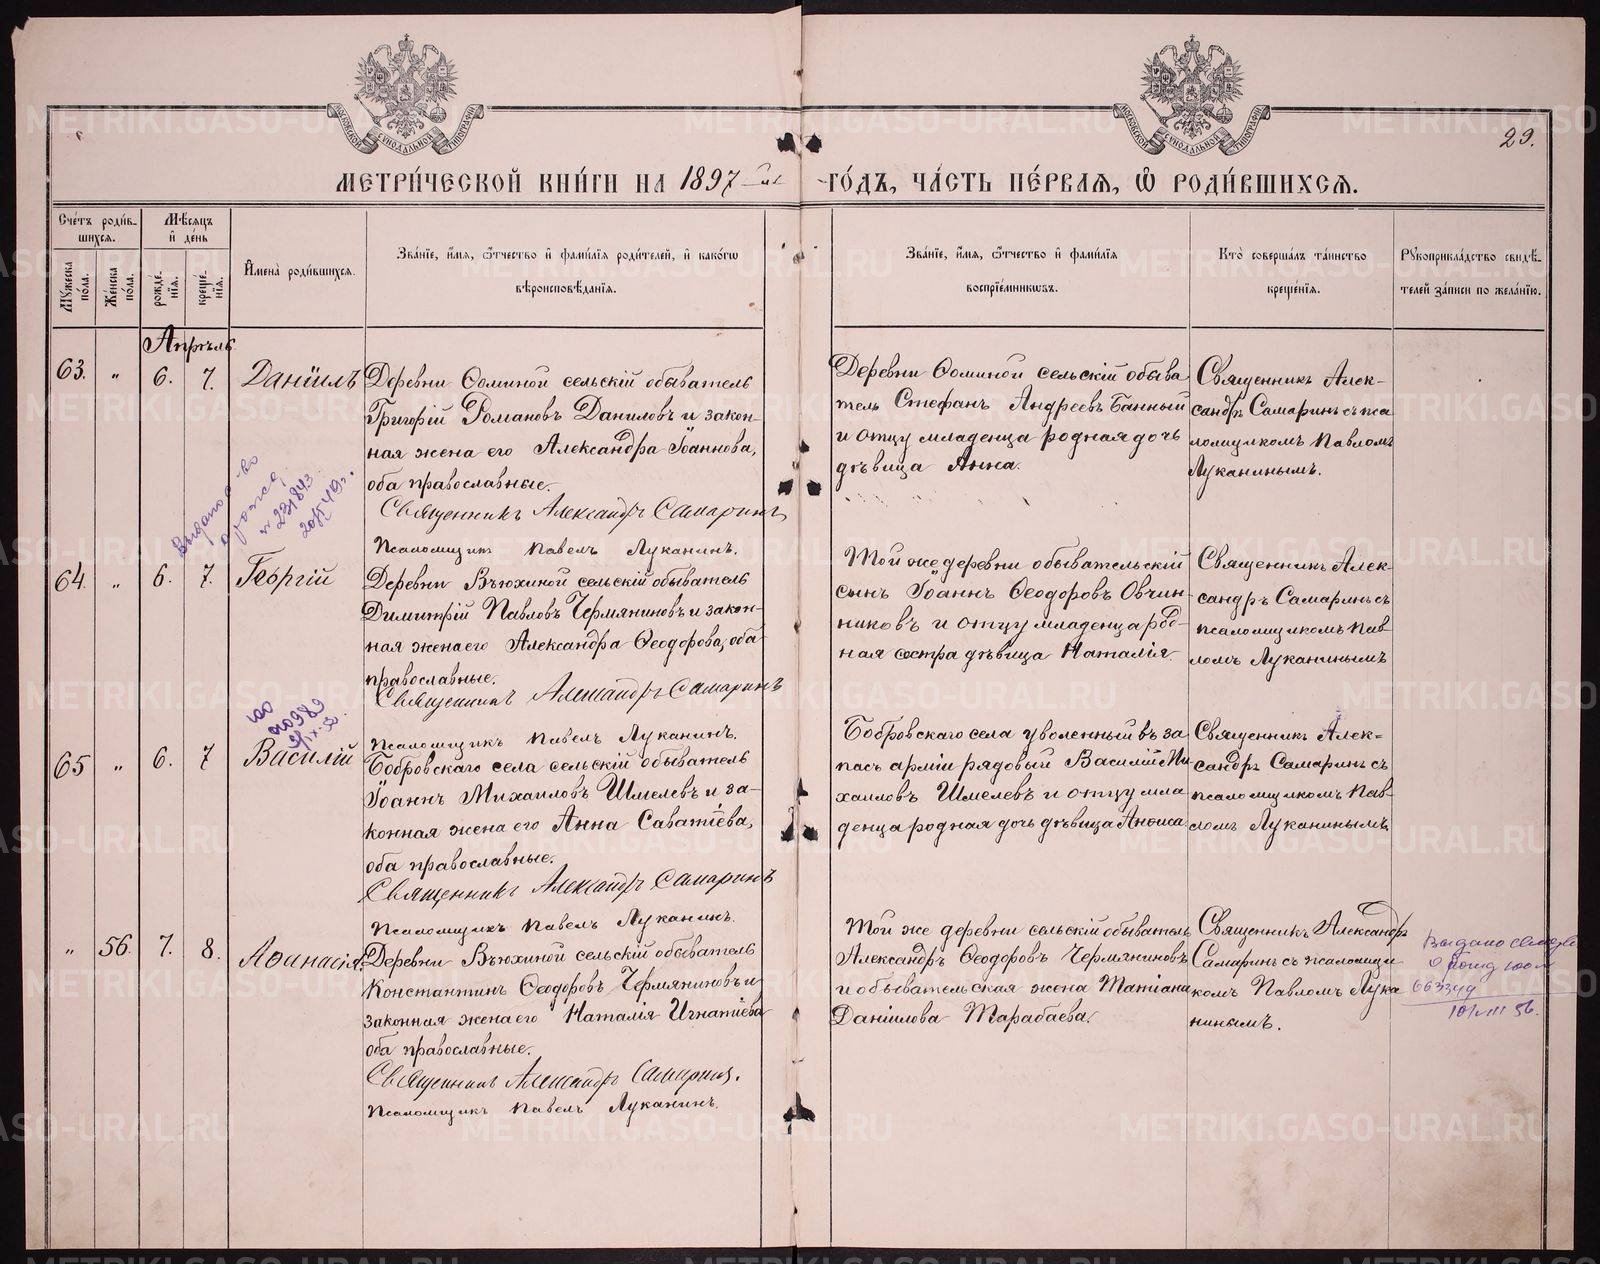 МОСКОВСКОЙ СѴНОДАЛЬНОЙ ТИПОГРАФІИ
МОСКОВСКОЙ СѴНОДАЛЬНОЙ ТИПОГРАФІИ
29.
МЕТРИ́ЧЕСКОЙ КНИ́ГИ НА 1897-й
ГО́ДЪ, ЧА́СТЬ ПЕ́РВАЯ, Ѽ РОДИ́ВШИХСЯ.
Сче́тъ роди́в-
шихся.
Мѣ́сяцъ
и҆ де́нь
Му́жеска по́ла.
Же́нска по́ла.
рожде́-
нїѧ.
креще́-
нїѧ.
И҆мена̀ роди́вшихся.
Зва́нїе, и҆́мя, ѻ҆́тчество и҆ фами́лїя роди́телей, и҆ како́гѡ
вѣроисповѣ́данїя.
Зва́нїе, и҆́мя, ѻ҆́тчество и҆ фами́лїя
воспрїе́мникѡвъ.
Кто̀ соверша́лъ та́инство
креще́нїя.
Рꙋкоприкла́дство свидѣ́-
телей за́писи по жела́нїю.
Апрѣль
63.
"
6.
7.
Даніилъ
Деревни Ѳоминой сельскій обыватель
Григорій Романовъ Даниловъ и закон-
ная жена его Александра Іоаннова,
оба православные.
Священникъ Александръ Самаринъ
Псаломщикъ Павелъ Луканинъ.
Деревни Ѳоминой сельскій обыва
тель Стефанъ Андреевъ Банный
и отцу младенца родная дочь
дѣвица Анна.
Священникъ Алек-
сандръ Самаринъ съ пса
ломщикомъ Павломъ
Луканинымъ.
Выдано св-во
о рожд
№ 231843
64.
"
6.
7.
Георгій
Деревни Вьюхиной сельскій обыватель
Димитрій Павловъ Чермяниновъ и закон-
ная жена его Александра Ѳеодорова, оба
православные.
Священникъ Александръ Самаринъ
Псаломщикъ Павелъ Луканинъ.
Той же деревни обывательскій
сынъ Іоаннъ Ѳеодоровъ Овчин
никовъ и отцу младенца род-
ная сестра дѣвица Наталія
Священникъ Алек-
сандръ Самаринъ съ
псаломщикомъ Пав-
ломъ Луканинымъ
65
"
6.
7
Василій
Бобровскаго села сельскій обыватель
Іоаннъ Михаиловъ Шмелевъ и за-
конная жена его Анна Саватіева,
оба православные.
Священникъ Александръ Самаринъ
Псаломщикъ Павелъ Луканинъ.
Бобровскаго села уволенный въ за
пасъ арміи рядовый Василій Ми
хаиловъ Шмелевъ и отцу мла
денца родная дочь дѣвица Анѳиса
Священникъ Алек-
сандръ Самаринъ съ
псаломщикомъ Пав-
ломъ Луканинымъ
"
56.
7.
8.
Аѳанасія
Деревни Вьюхиной сельскій обыватель
Константинъ Ѳеодоровъ Чермяниновъ и
законная жена его Наталія Игнатіева
оба православные.
Священникъ Александръ Самаринъ.
Псаломщикъ Павелъ Луканинъ.
Той же деревни сельскій обыватель
Александръ Ѳеодоровъ Чермяниновъ
и обывательская жена Татіана
Даніилова Тарабаева.
Священникъ Александръ
Самаринъ съ псаломщи
комъ Павломъ Лука
нинымъ.
Выдано
663349
10/VIII 56.
METRIKI.GASO-URAL.RU